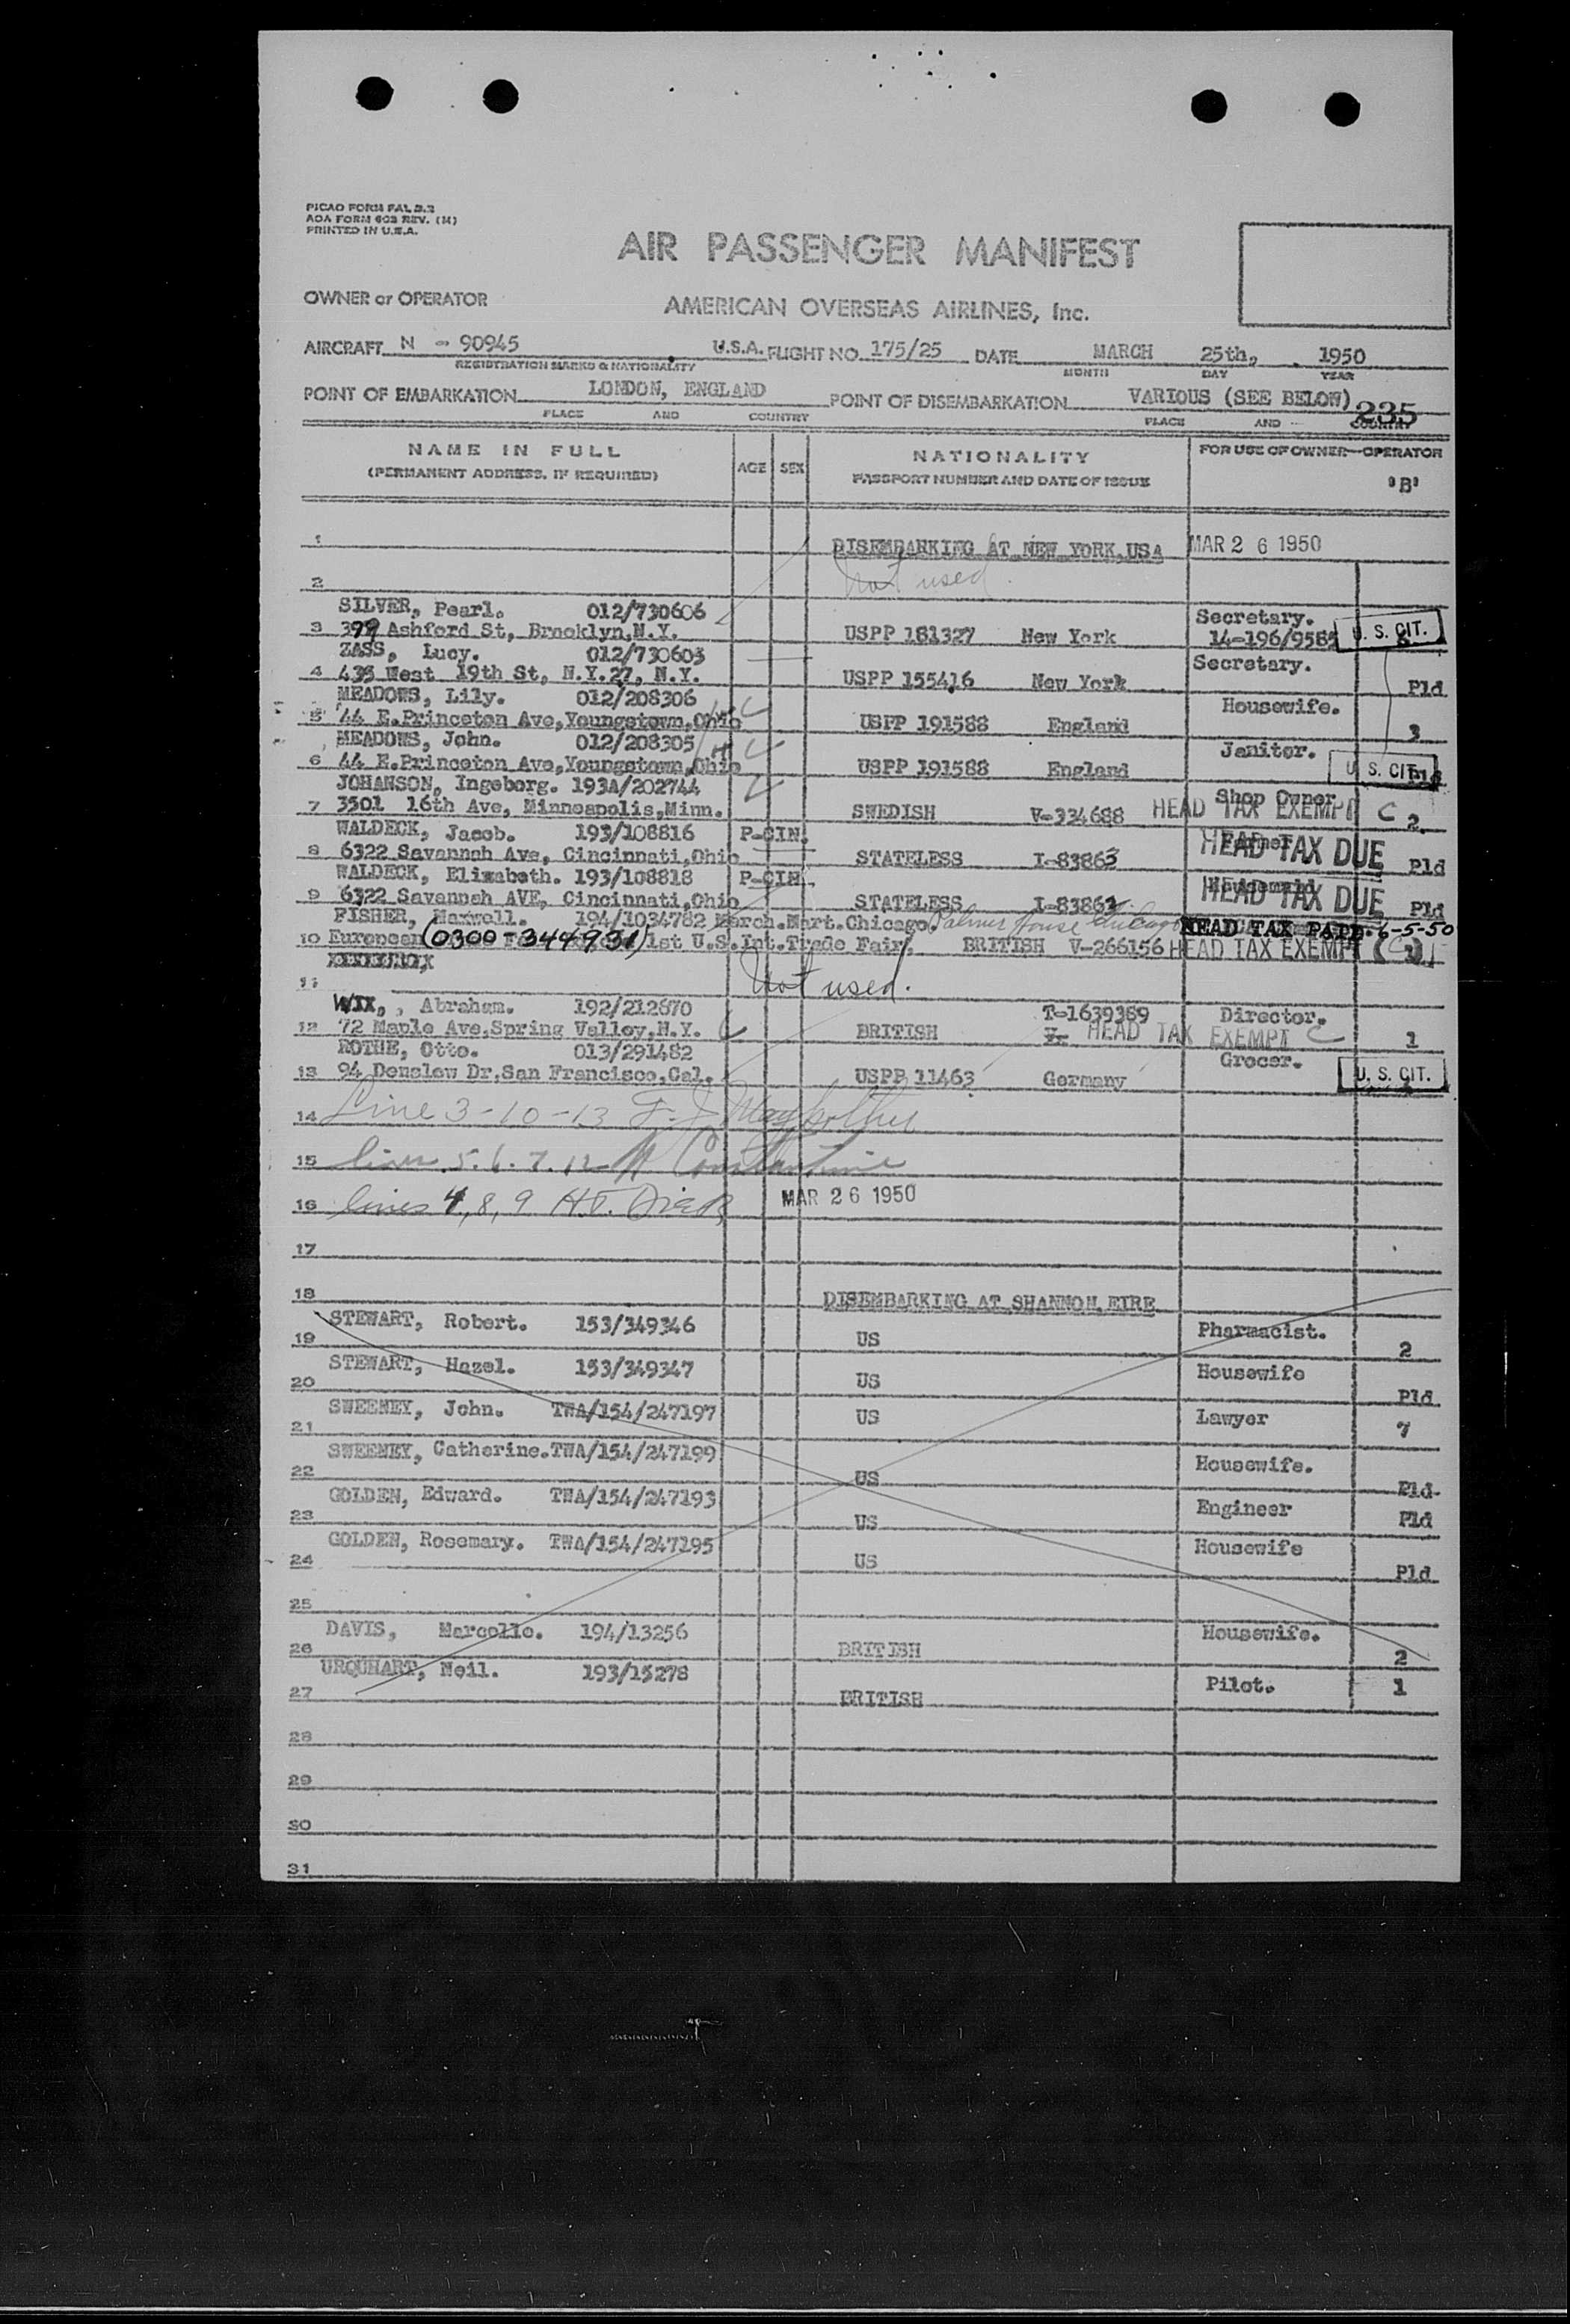 PICAO FORM FAL 2.2
AOA FORM 602 REV. (M)
PRINTED IN U.S.A.
AIR PASSENGER MANIFEST
OWNER or OPERATOR AMERICAN OVERSEAS AIRLINES, Inc.
AIRCRAFT N - 90945 U.S.A. FLIGHT NO. 175/25 DATE MARCH 25th, 1950
REGISTRATION MARKS & NATIONALITY MONTH DAY YEAR
POINT OF EMBARKATION LONDON, ENGLAND POINT OF DISEMBARKATION VARIOUS (SEE BELOW) 235
PLACE AND COUNTRY PLACE AND COUNTRY
NAME IN FULL AGE SEX NATIONALITY FOR USE OF OWNER-OPERATOR
(PERMANENT ADDRESS, IF REQUIRED) PASSPORT NUMBER AND DATE OF ISSUE "B"
1 DISEMBARKING AT NEW YORK, USA MAR 26 1950
2 Not used.
SILVER, Pearl. 012/730606 Secretary.
3 379 Ashford St, Brooklyn,N.Y. USPP 181327 New York 14-196/9585 U. S. CIT.
ZASS, Lucy. 012/730603 Secretary.
4 435 West 19th St, N.Y.27, N.Y. USPP 155416 New York Pld
MEADOWS, Lily. 012/208306 Housewife.
5 44 E.Princeton Ave,Youngstown,Ohio USPP 191588 England 3
MEADOWS, John. 012/208305 Janitor.
6 44 E.Princeton Ave,Youngstown,Ohio USPP 191588 England U. S. CIT.
JOHANSON, Ingeborg. 193A/202744 Shop Owner
7 3501 16th Ave, Minneapolis,Minn. SWEDISH V-334688 HEAD TAX EXEMPT C 2
WALDECK, Jacob. 193/108816 P-CIN. Farmer
8 6322 Savannah Ave, Cincinnati,Ohio STATELESS I-83863 HEAD TAX DUE Pld
WALDECK, Elizabeth. 193/108818 P-CIN.
9 6322 Savannah AVE, Cincinnati,Ohio STATELESS I-83862 HEAD TAX DUE Pld
FISHER, Maxwell. 194/1034782 March.Mart.Chicago. Palmer House Chicago HEAD TAX PAID. 6-5-50
10 European (0300-344931) 1st U.S.Int.Trade Fair. BRITISH V-266156 HEAD TAX EXEMPT (C)
11 Not used.
WIX, , Abraham. 192/212670 T-1639389 Director.
12 72 Maple Ave,Spring Valley,N.Y. BRITISH V- HEAD TAX EXEMPT C 1
ROTHE, Otto. 013/291482 Grocer.
13 94 Denslow Dr,San Francisco,Cal. USPP 11463 Germany U. S. CIT.
14 Line 3-10-13
15 lines 5.6.7.12 Constantine
16 lines 4,8,9 MAR 26 1950
17
18 DISEMBARKING AT SHANNON, EIRE
STEWART, Robert. 153/349346 Pharmacist.
19 US 2
STEWART, Hazel. 153/349347 Housewife
20 US Pld
SWEENEY, John. TWA/154/247197 US Lawyer
21 7
SWEENEY, Catherine.TWA/154/247199 Housewife.
22 US Pld
GOLDEN, Edward. TWA/154/247193 Engineer
23 US Pld
GOLDEN, Rosemary. TWA/154/247195 Housewife
24 US Pld
25
DAVIS, Marcelle. 194/13256 Housewife.
26 BRITISH 2
URQUHART, Neil. 193/15278 Pilot.
27 BRITISH 1
28
29
30
31